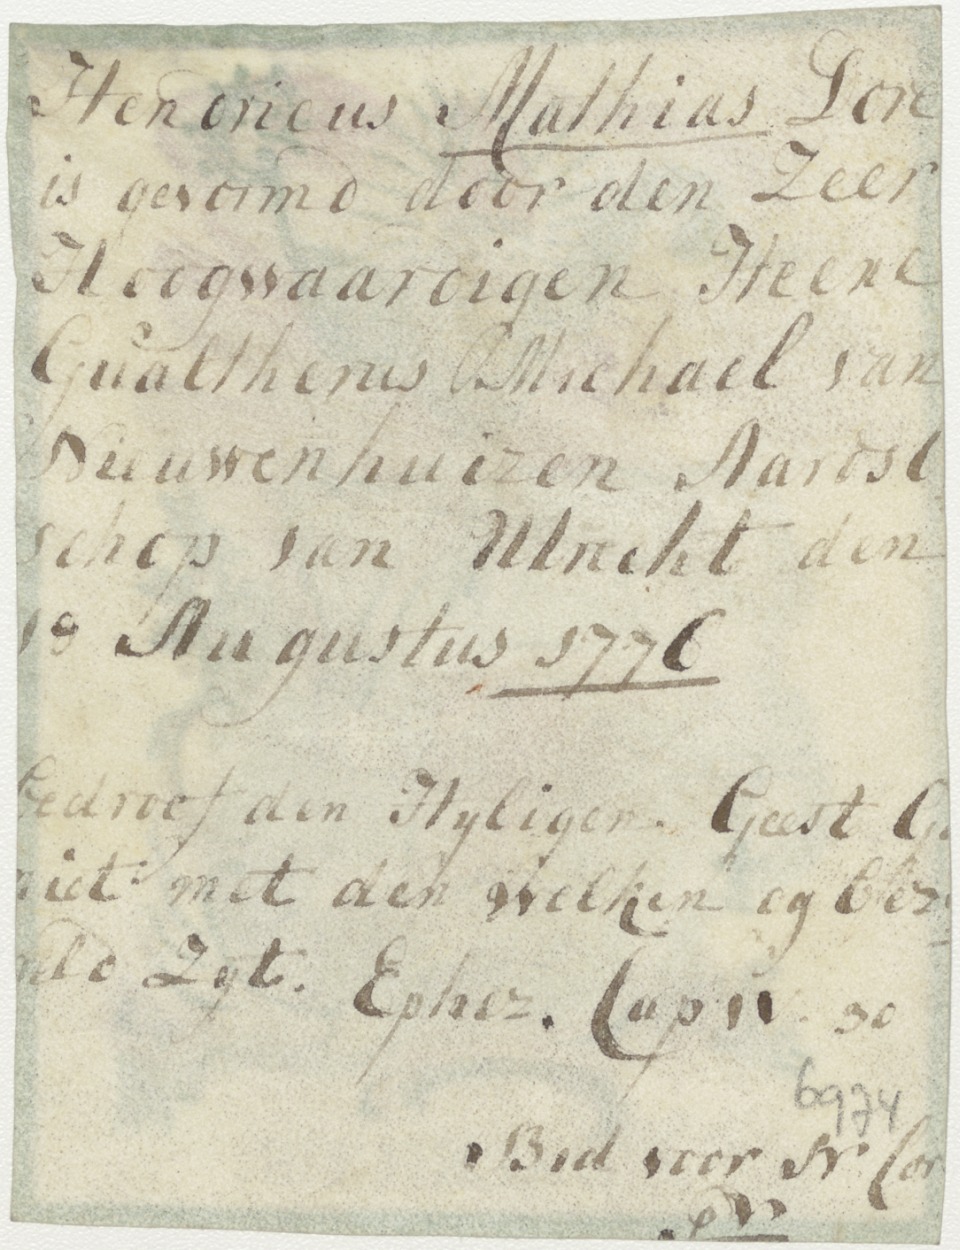 Hendricus Mathias Lore
is gevormd door den Zeer
Hoogwaardigen Heere
Gualtherus Michael van
Nieuwenhuizen Aardsb
schop van Utrecht den
18 Augustus 1776
Bedroef den Hyligen Geest G
niet met den welken gy bez
geld Zyt.
Ephez. Cap IV. 30
6974
Bid voor Sr Cor